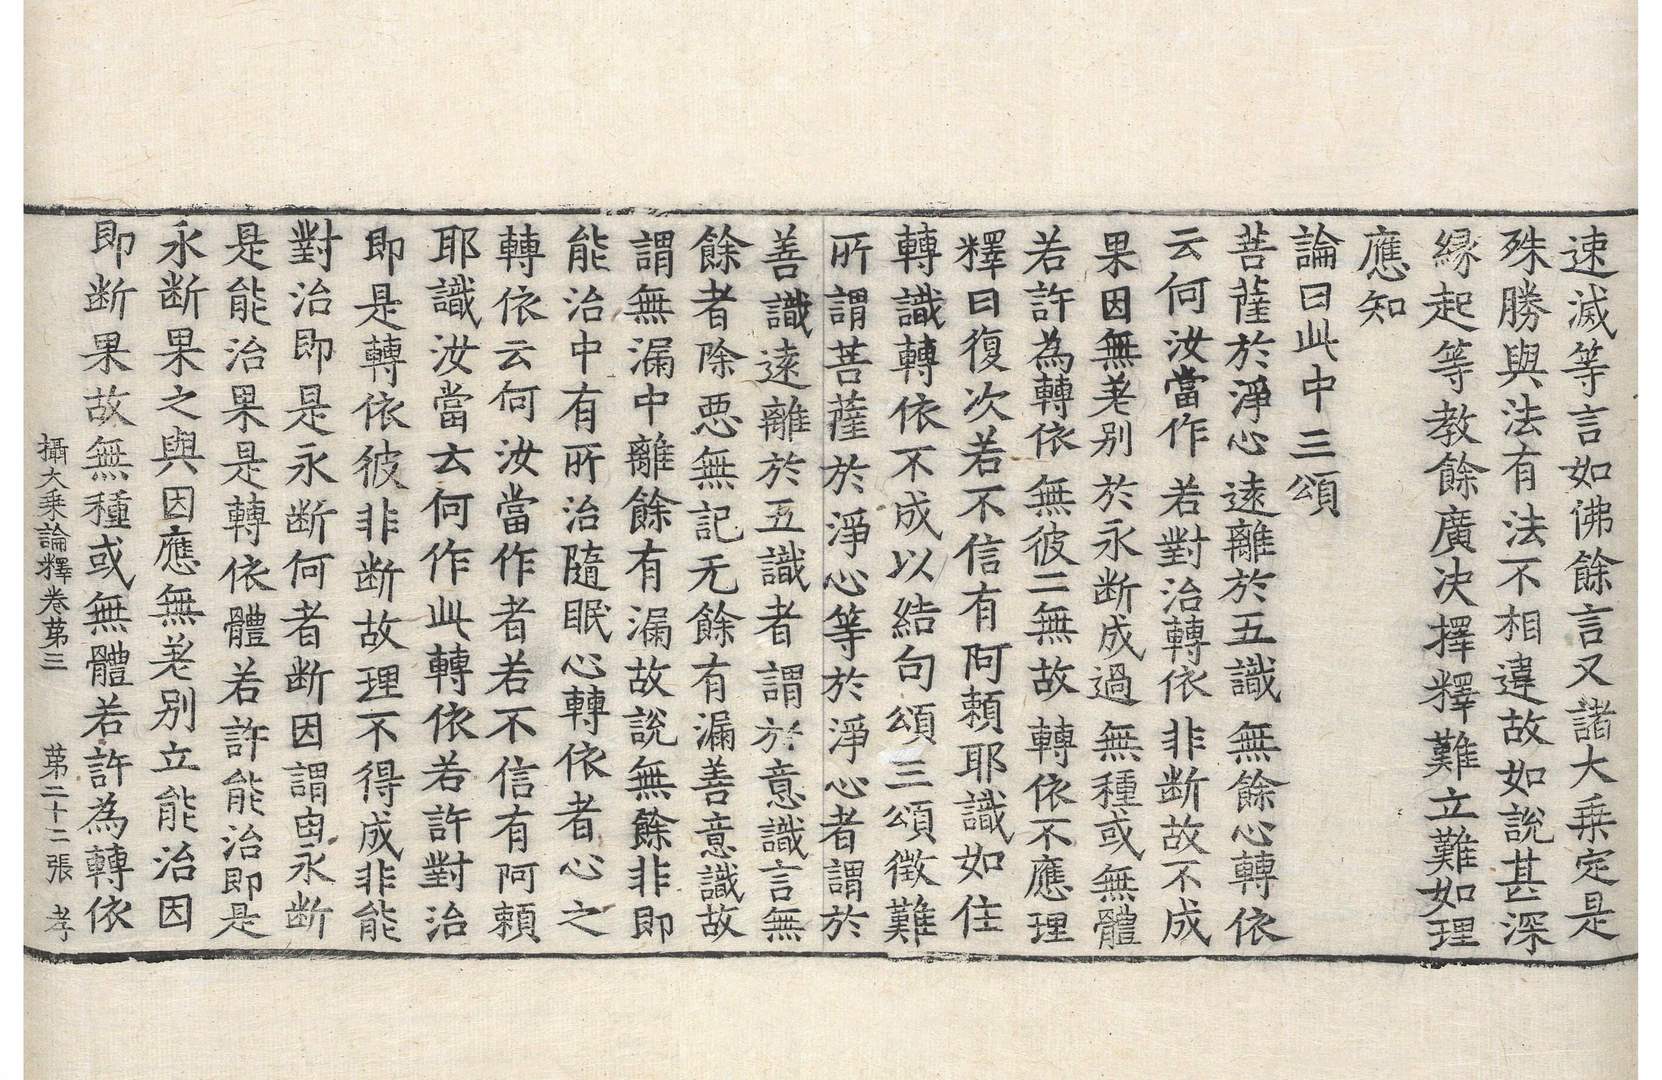 速滅等言如佛餘言又諸大乗定是
殊勝與法有法不相違故如說甚深
緣起等教餘廣决擇釋難立難如理
應知
論曰此中三頌
菩薩於淨心 遠離於五識 無餘心轉依
云何汝當作 若對治轉依 非断故不成
果因無差别 於永断成過 無種或無體
若許為轉依 無彼二無故 轉依不應理
釋曰復次若不信有阿賴耶識如住
轉識轉依不成以結句頌三頌徵難
所謂菩薩於淨心等於淨心者謂於
善識遠離於五識者謂於意識言無
餘者除惡無記无餘有漏善意識故
謂無漏中離餘有漏故說無餘非即
能治中有所治隨眠心轉依者心之
轉依云何汝當作者若不信有阿賴
耶識汝當云何作此轉依若許對治
即是轉依彼非断故理不得成非能
對治即是永断何者断因謂由永断
是能治果是轉依體若許能治即是
永断果之與因應無差别立能治因
即断果故無種或無體若許為轉依
攝大乗論釋卷第三 第二十二張 孝